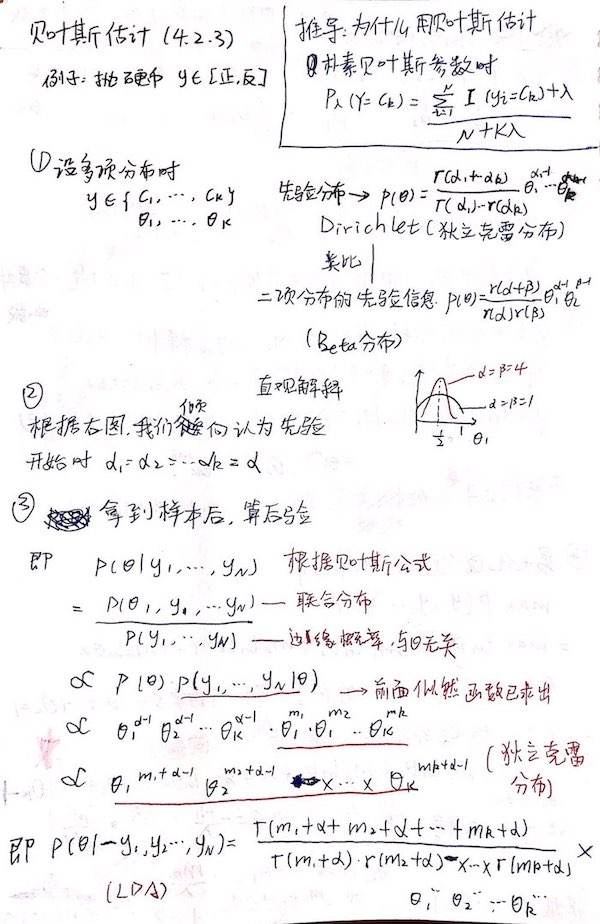 贝叶斯估计 (4.2.3)
例子: 抛硬币 y∈[正.反]
推导: 为什么用贝叶斯估计
朴素贝叶斯参数时
Pλ(Y=Ck) = (∑_{i=1}^{N} I(yi=Ck)+λ) / (N+Kλ)
① 设多项分布时
y∈{C1, ..., Ck}
θ1, ..., θk
先验分布→ P(θ) = Γ(α1+..αk) / Γ(α1)..Γ(αk) θ1^{α1-1} ... θk^{αk-1}
Dirichlet (狄立克雷分布)
类比
二项分布的先验信息. P(θ)= Γ(α+β) / Γ(α)Γ(β) θ1^{α-1} θ2^{β-1}
(Beta分布)
直观解释
α=β=4
α=β=1
1/2 θ1
②
根据右图, 我们倾向认为先验
开始时 α1=α2=...αk=α
③ 拿到样本后, 算后验
即 P(θ|y1, ..., yN) 根据贝叶斯公式
= P(θ1, y1, ... yN) — 联合分布
P(y1, ... yN) — 边缘概率, 与θ无关
∝ P(θ)·P(y1, ... yN|θ) → 前面似然函数已求出
∝ θ1^{α-1} θ2^{α-1} ... θk^{α-1} · θ1^{m1} · θ1^{m2} ... θk^{mk}
∝ θ1^{m1+α-1} θ2^{m2+α-1} x ... x θk^{mk+α-1} (狄立克雷
分布)
即 P(θ|y1, y2..., yN) = Γ(m1+α+m2+α+...+mk+α) / Γ(m1+α)·Γ(m2+α) x...x Γ(mk+α) ×
(LDA) θ1^{..} θ2^{..} ... θk^{..}